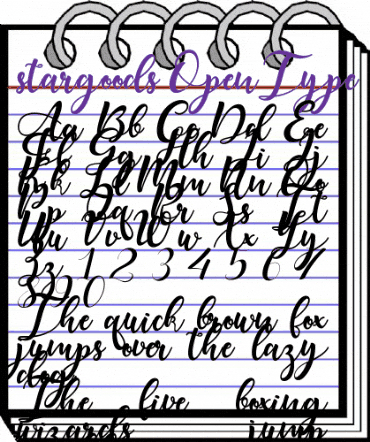 stargoods Open Type
Aa Bb Cc Dd Ee
Ff Gg Hh Ii Jj
Kk Ll Mm Nn Oo
Pp Qq Rr Ss Tt
Uu Vv Ww Xx Yy
Zz 1 2 3 4 5 6 7
8 9 0
The quick brown fox
jumps over the lazy
dog.
The five boxing
wizards jump